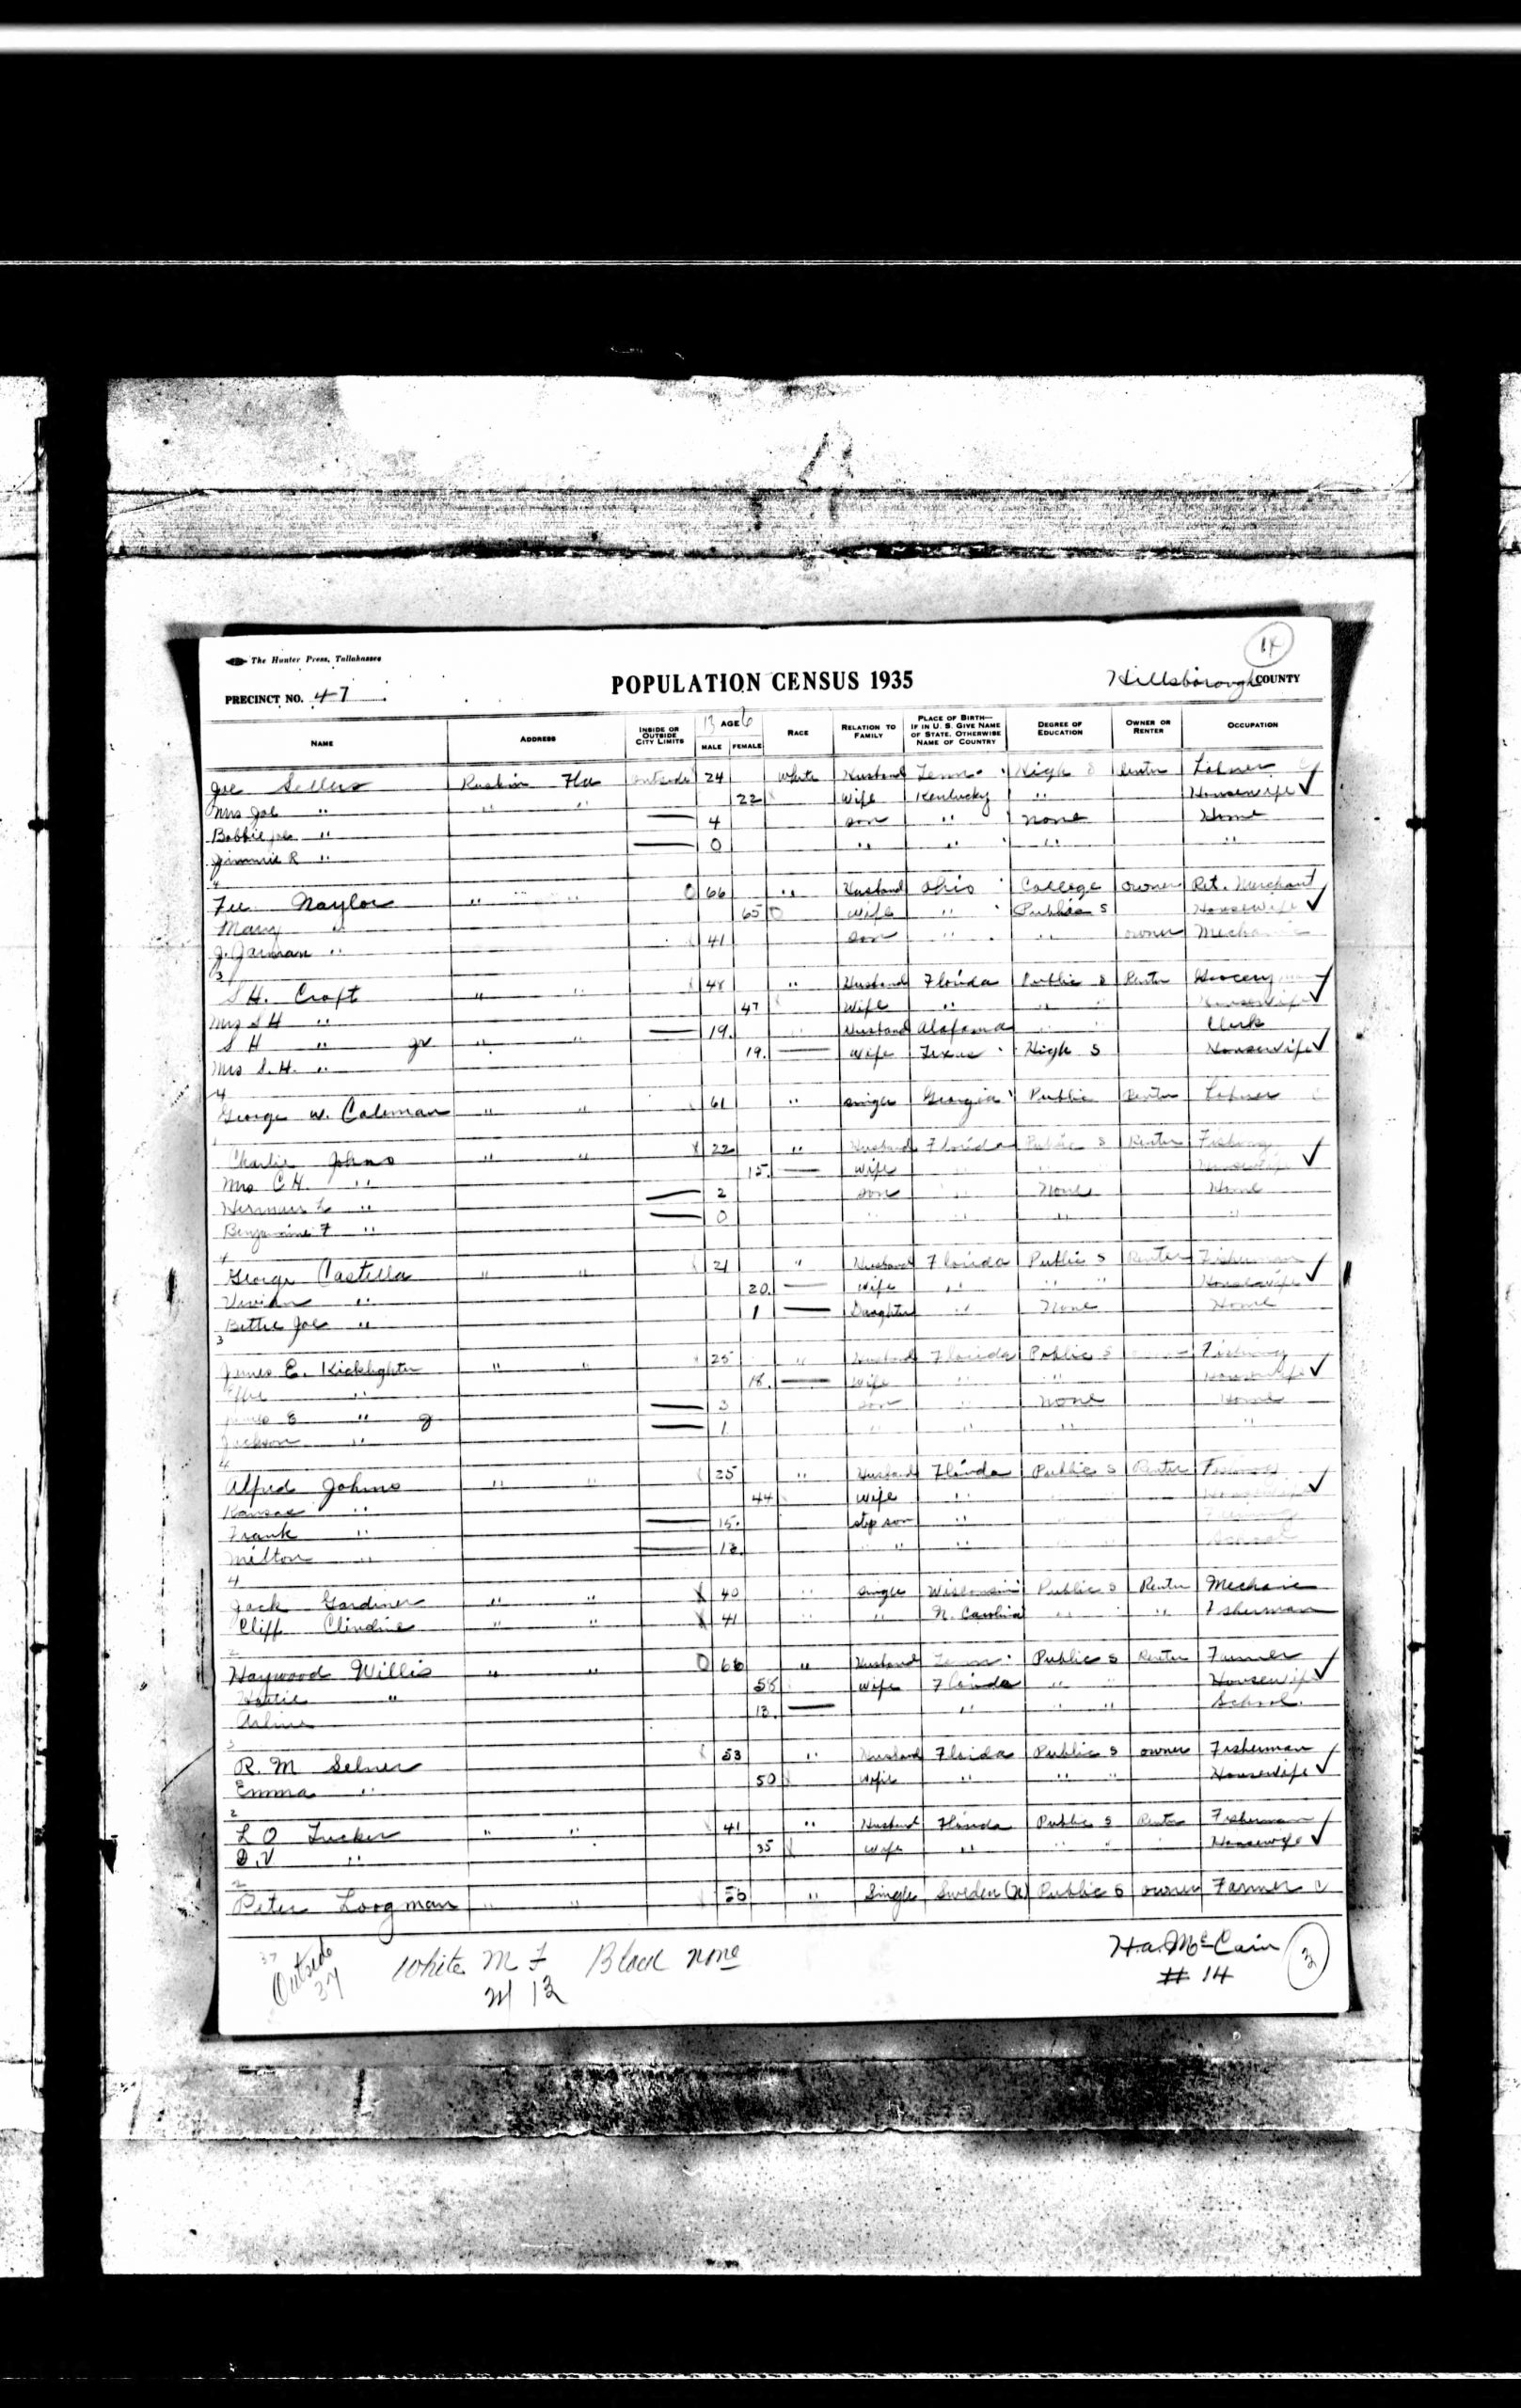 The Hunter Press, Tallahassee
14
PRECINCT NO. 47 POPULATION CENSUS 1935 Hillsborough COUNTY
13 6
NAME ADDRESS INSIDE OR OUTSIDE CITY LIMITS AGE MALE FEMALE RACE RELATION TO FAMILY PLACE OF BIRTH—IF IN U. S. GIVE NAME OF STATE, OTHERWISE NAME OF COUNTRY DEGREE OF EDUCATION OWNER OR RENTER OCCUPATION
Joe Sellers Ruskin Fla outside 24 White Husband Tenn. High S Renter Laborer
Mrs Joe " " " 22 Wife Kentucky " Housewife ✓
Bobbie Joe " — 4 son " none Home
Jimmie R " — 0 " " " "
4
Naylor " " O 66 " Husband Ohio College owner Ret. Merchant
Mary " 65 O Wife " Public S Housewife ✓
J. " 41 son " " owner Mechanic
3
S H. Croft " " 48 " Husband Florida Public S Renter Grocery
Mrs S H " 47 Wife " " " Housewife ✓
S H " Jr " " — 19. Husband Alabama " " Clerk
Mrs S. H. " 19. — Wife Texas High S Housewife ✓
4
George W. Coleman " " 61 " single Georgia Public Renter Laborer
1
Charlie Johns " " 22 " Husband Florida Public S Renter Fishing
Mrs C H. " 15. — Wife " " Housewife ✓
" — 2 son " None Home
Benjamine F " — 0 " " " "
4
George Castella " " 21 " Husband Florida Public S Renter Fisherman
Vivian " 20. — Wife " " " Housewife ✓
Bettie Joe " 1 — Daughter " None Home
3
James E. Kicklighter " " 25 " Husband Florida Public S Fishing
" 18. — Wife " " Housewife ✓
James E " Jr — 3 son " none Home
Jackson " — 1. " " " "
4
Alfred Johns " " 25 " Husband Florida Public S Renter
" 44 Wife " Housewife ✓
Frank " — 15. step son "
Milton " — 13. " " School
4
Jack Gardiner " " X 40 " single Wisconsin Public S Renter Mechanic
Cliff " " X 41 " " N. Carolina " " Fisherman
2
Haywood Willis " " O 66 " Husband Tenn. Public S Renter Farmer
" 58 Wife Florida " " Housewife ✓
13. — " " " School.
3
R. M 53 " Husband Florida Public S owner Fisherman
Emma " 50 Wife " " " Housewife ✓
2
L O Tucker " " 41 " Husband Florida Public S Renter Fisherman
D. V " 35 Wife " " " Housewife ✓
2
Peter Loogman " " 56 " Single Sweden (N) Public S owner Farmer
37 Outside 37 White M F Black none H. A. McCain 3
21 13 # 14